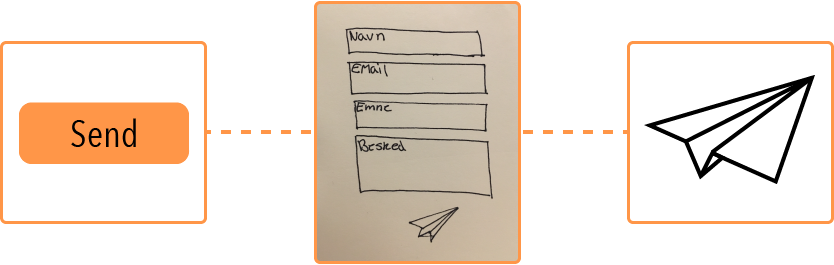 Send
Navn
EMail
Emne
Besked